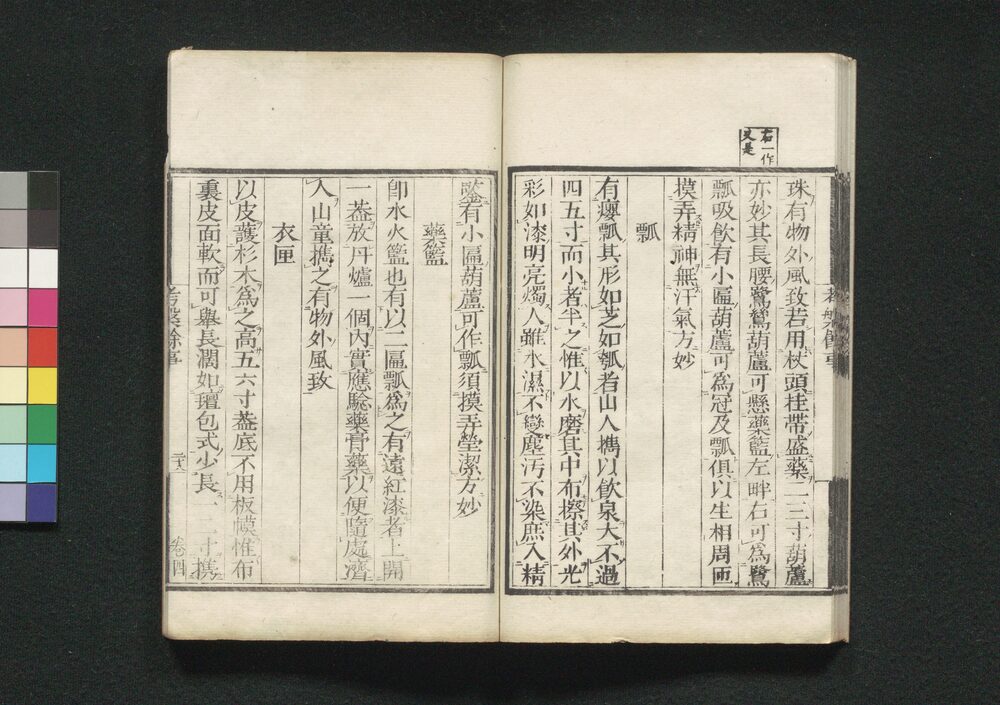 右一作
又是
珠有物外風致若用杖頭挂帶盛藥二三寸葫蘆
亦妙其長腰鷺鷥葫蘆可懸藥籃左畔右可爲鷺
瓢吸飲有小匾葫蘆可爲冠及瓢俱以生相周匝
摸弄精神無汗氣方妙
瓢
有癭瓢其形如芝如瓠者山人擕以飲泉大不過
四五寸而小者半之惟以水磨其中布擦其外光
彩如漆明亮燭人雖水濕不變塵汚不染庶入精
鑒有小匾葫蘆可作瓢須摸弄瑩潔方妙
藥籃
卽水火籃也有以二匾瓢爲之有遠紅漆者上開
一葢放丹爐一個內實應驗藥膏藥以便隨處濟
人山童擕之有物外風致
衣匣
以皮護杉木爲之高五六寸葢底不用板幔惟布
裏皮面軟而可舉長濶如氊包式少長一二寸擕
考槃餘事
卷四